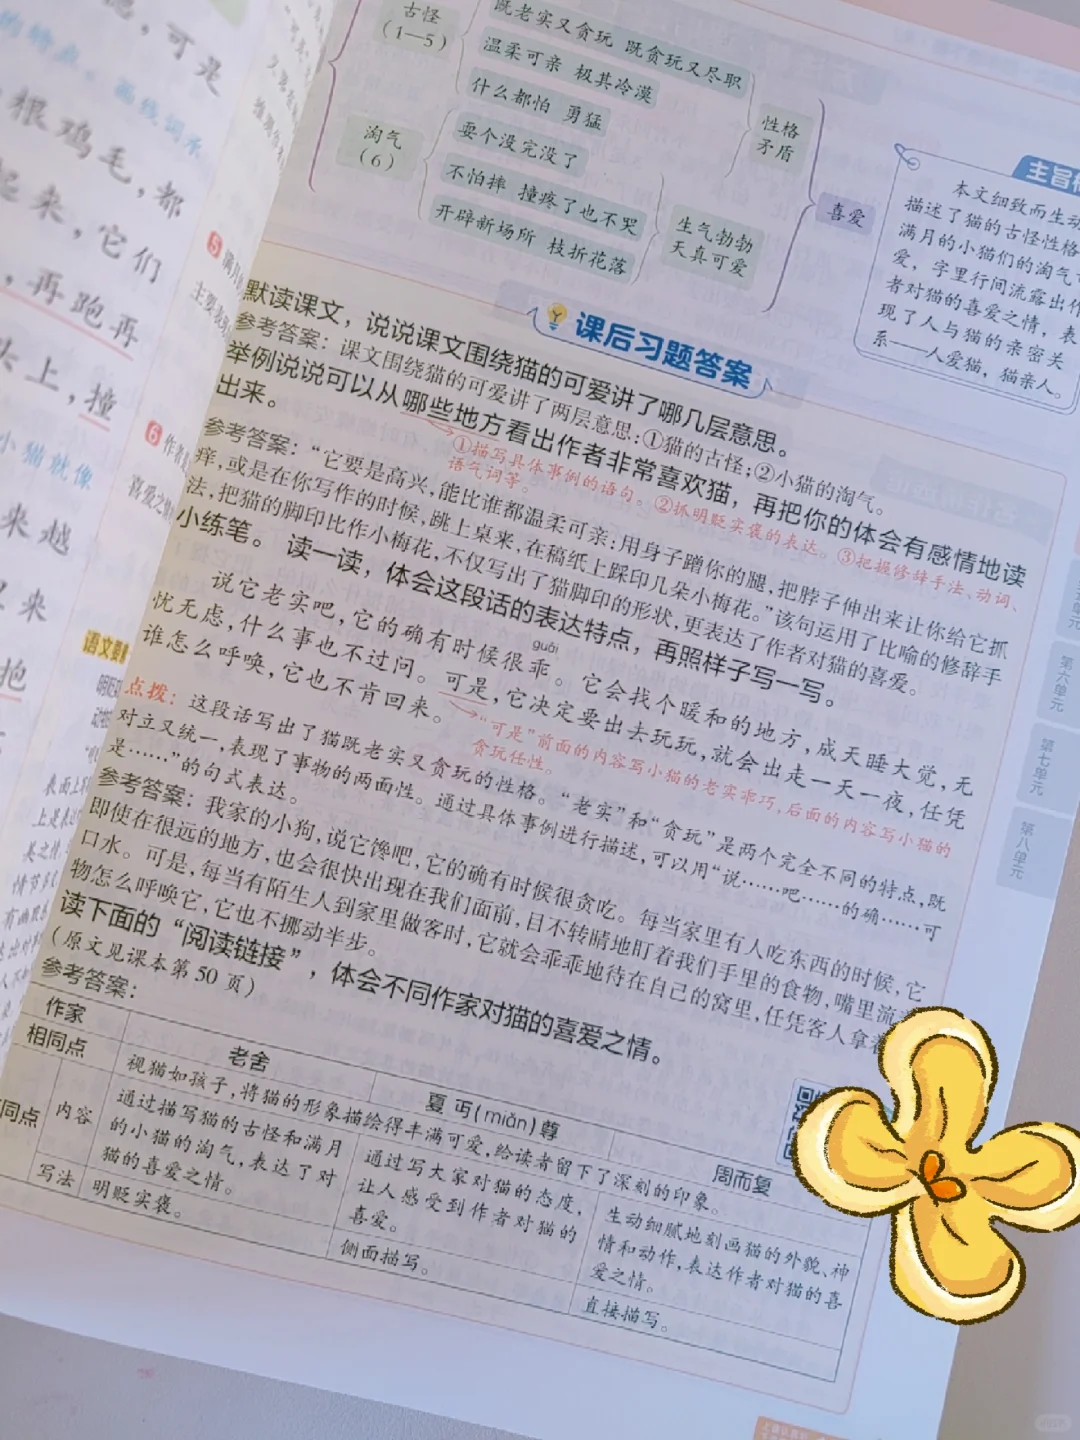 可是
根鸡毛，都
起来，它们
，再跑再
头上，撞
小猫就像
来越
古怪
（1—5）
既老实又贪玩 既贪玩又尽职
温柔可亲 极其冷漠
什么都怕 勇猛
性格
矛盾
淘气
（6）
耍个没完没了
不怕摔 撞疼了也不哭
开辟新场所 枝折花落
生气勃勃
天真可爱
喜爱
本文细致而生动
描述了猫的古怪性格
满月的小猫们的淘气
爱，字里行间流露出作
者对猫的喜爱之情，表
现了人与猫的亲密关
系——人爱猫，猫亲人。
课后习题答案
默读课文，说说课文围绕猫的可爱讲了哪几层意思。
参考答案：课文围绕猫的可爱讲了两层意思：①猫的古怪；②小猫的淘气。
举例说说可以从哪些地方看出作者非常喜欢猫，再把你的体会有感情地读
出来。
①描写具体事例的语句。②抓明贬实褒的表达。③把握修辞手法、动词、
语气词等。
参考答案：“它要是高兴，能比谁都温柔可亲：用身子蹭你的腿，把脖子伸出来让你给它抓
痒，或是在你写作的时候，跳上桌来，在稿纸上踩印几朵小梅花。”该句运用了比喻的修辞手
法，把猫的脚印比作小梅花，不仅写出了猫脚印的形状，更表达了作者对猫的喜爱。
小练笔。 读一读，体会这段话的表达特点，再照样子写一写。
guāi
说它老实吧，它的确有时候很乖。它会找个暖和的地方，成天睡大觉，无
忧无虑，什么事也不过问。可是，它决定要出去玩玩，就会出走一天一夜，任凭
谁怎么呼唤，它也不肯回来。
“可是”前面的内容写小猫的老实乖巧，后面的内容写小猫的
贪玩任性。
点拨：这段话写出了猫既老实又贪玩的性格。“老实”和“贪玩”是两个完全不同的特点，既
对立又统一，表现了事物的两面性。通过具体事例进行描述，可以用“说……吧……的确……可
是……”的句式表达。
参考答案：我家的小狗，说它馋吧，它的确有时候很贪吃。每当家里有人吃东西的时候，它
即使在很远的地方，也会很快出现在我们面前，目不转睛地盯着我们手里的食物，嘴里流
口水。可是，每当有陌生人到家里做客时，它就会乖乖地待在自己的窝里，任凭客人拿
物怎么呼唤它，它也不挪动半步。
读下面的“阅读链接”，体会不同作家对猫的喜爱之情。
（原文见课本第50页）
参考答案：
作家
老舍
夏丏(miǎn)尊
周而复
相同点
视猫如孩子，将猫的形象描绘得丰满可爱，给读者留下了深刻的印象。
同点
内容
通过描写猫的古怪和满月
的小猫的淘气，表达了对
猫的喜爱之情。
通过写大家对猫的态度，
让人感受到作者对猫的
喜爱。
生动细腻地刻画猫的外貌、神
情和动作，表达作者对猫的喜
爱之情。
写法
明贬实褒。
侧面描写。
直接描写。
第六单元
第七单元
第八单元